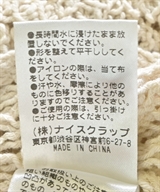 ●長時間水に浸けたまま放
置しないでください。
●形を整えて平干ししてく
ださい。
●アイロンの際は、当て布
をしてください。
●汗や水、摩擦により他の
ものに色移りすることがあり
ますのでご注意ください。
(株)ナイスクラップ
東京都渋谷区神宮前6-27-8
MADE IN CHINA